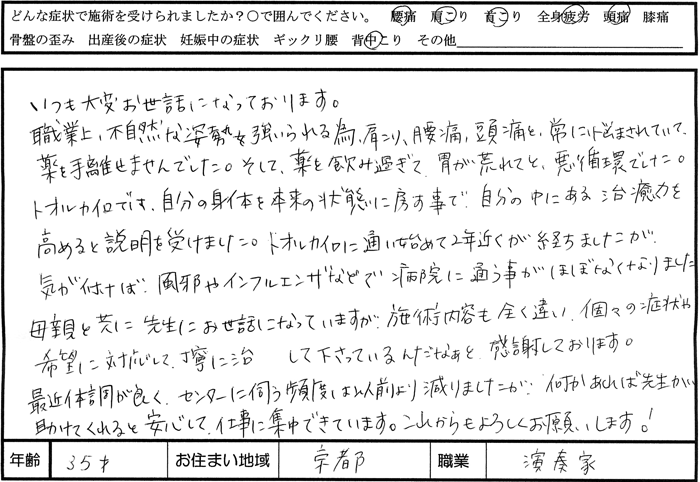 どんな症状で施術を受けられましたか？〇で囲んでください。 腰痛 肩こり 首こり 全身疲労 頭痛 膝痛
骨盤の歪み 出産後の症状 妊娠中の症状 ギックリ腰 背中こり その他
いつも大変お世話になっております。
職業上、不自然な姿勢を強いられる為、肩こり、腰痛、頭痛と、常に悩まされていて、
薬を手離せませんでした。そして、薬を飲み過ぎて、胃が荒れてと、悪循環でした。
トオルカイロでは、自分の身体を本来の状態に戻す事で、自分の中にある治癒力を
高めると説明を受けました。トオルカイロに通い始めて2年近くが経ちましたが、
気が付けば、風邪やインフルエンザなどで病院に通う事がほぼなくなりました。
母親と共に先生にお世話になっていますが、施術内容も全く違い、個々の症状や
希望に対応して、丁寧に治 して下さっているんだなぁと、感謝しております。
最近体調が良く、センターに伺う頻度は以前より減りましたが、何かあれば先生が
助けてくれると安心して、仕事に集中できています。これからもよろしくお願いします！
年齢 35才 お住まい地域 京都 職業 演奏家